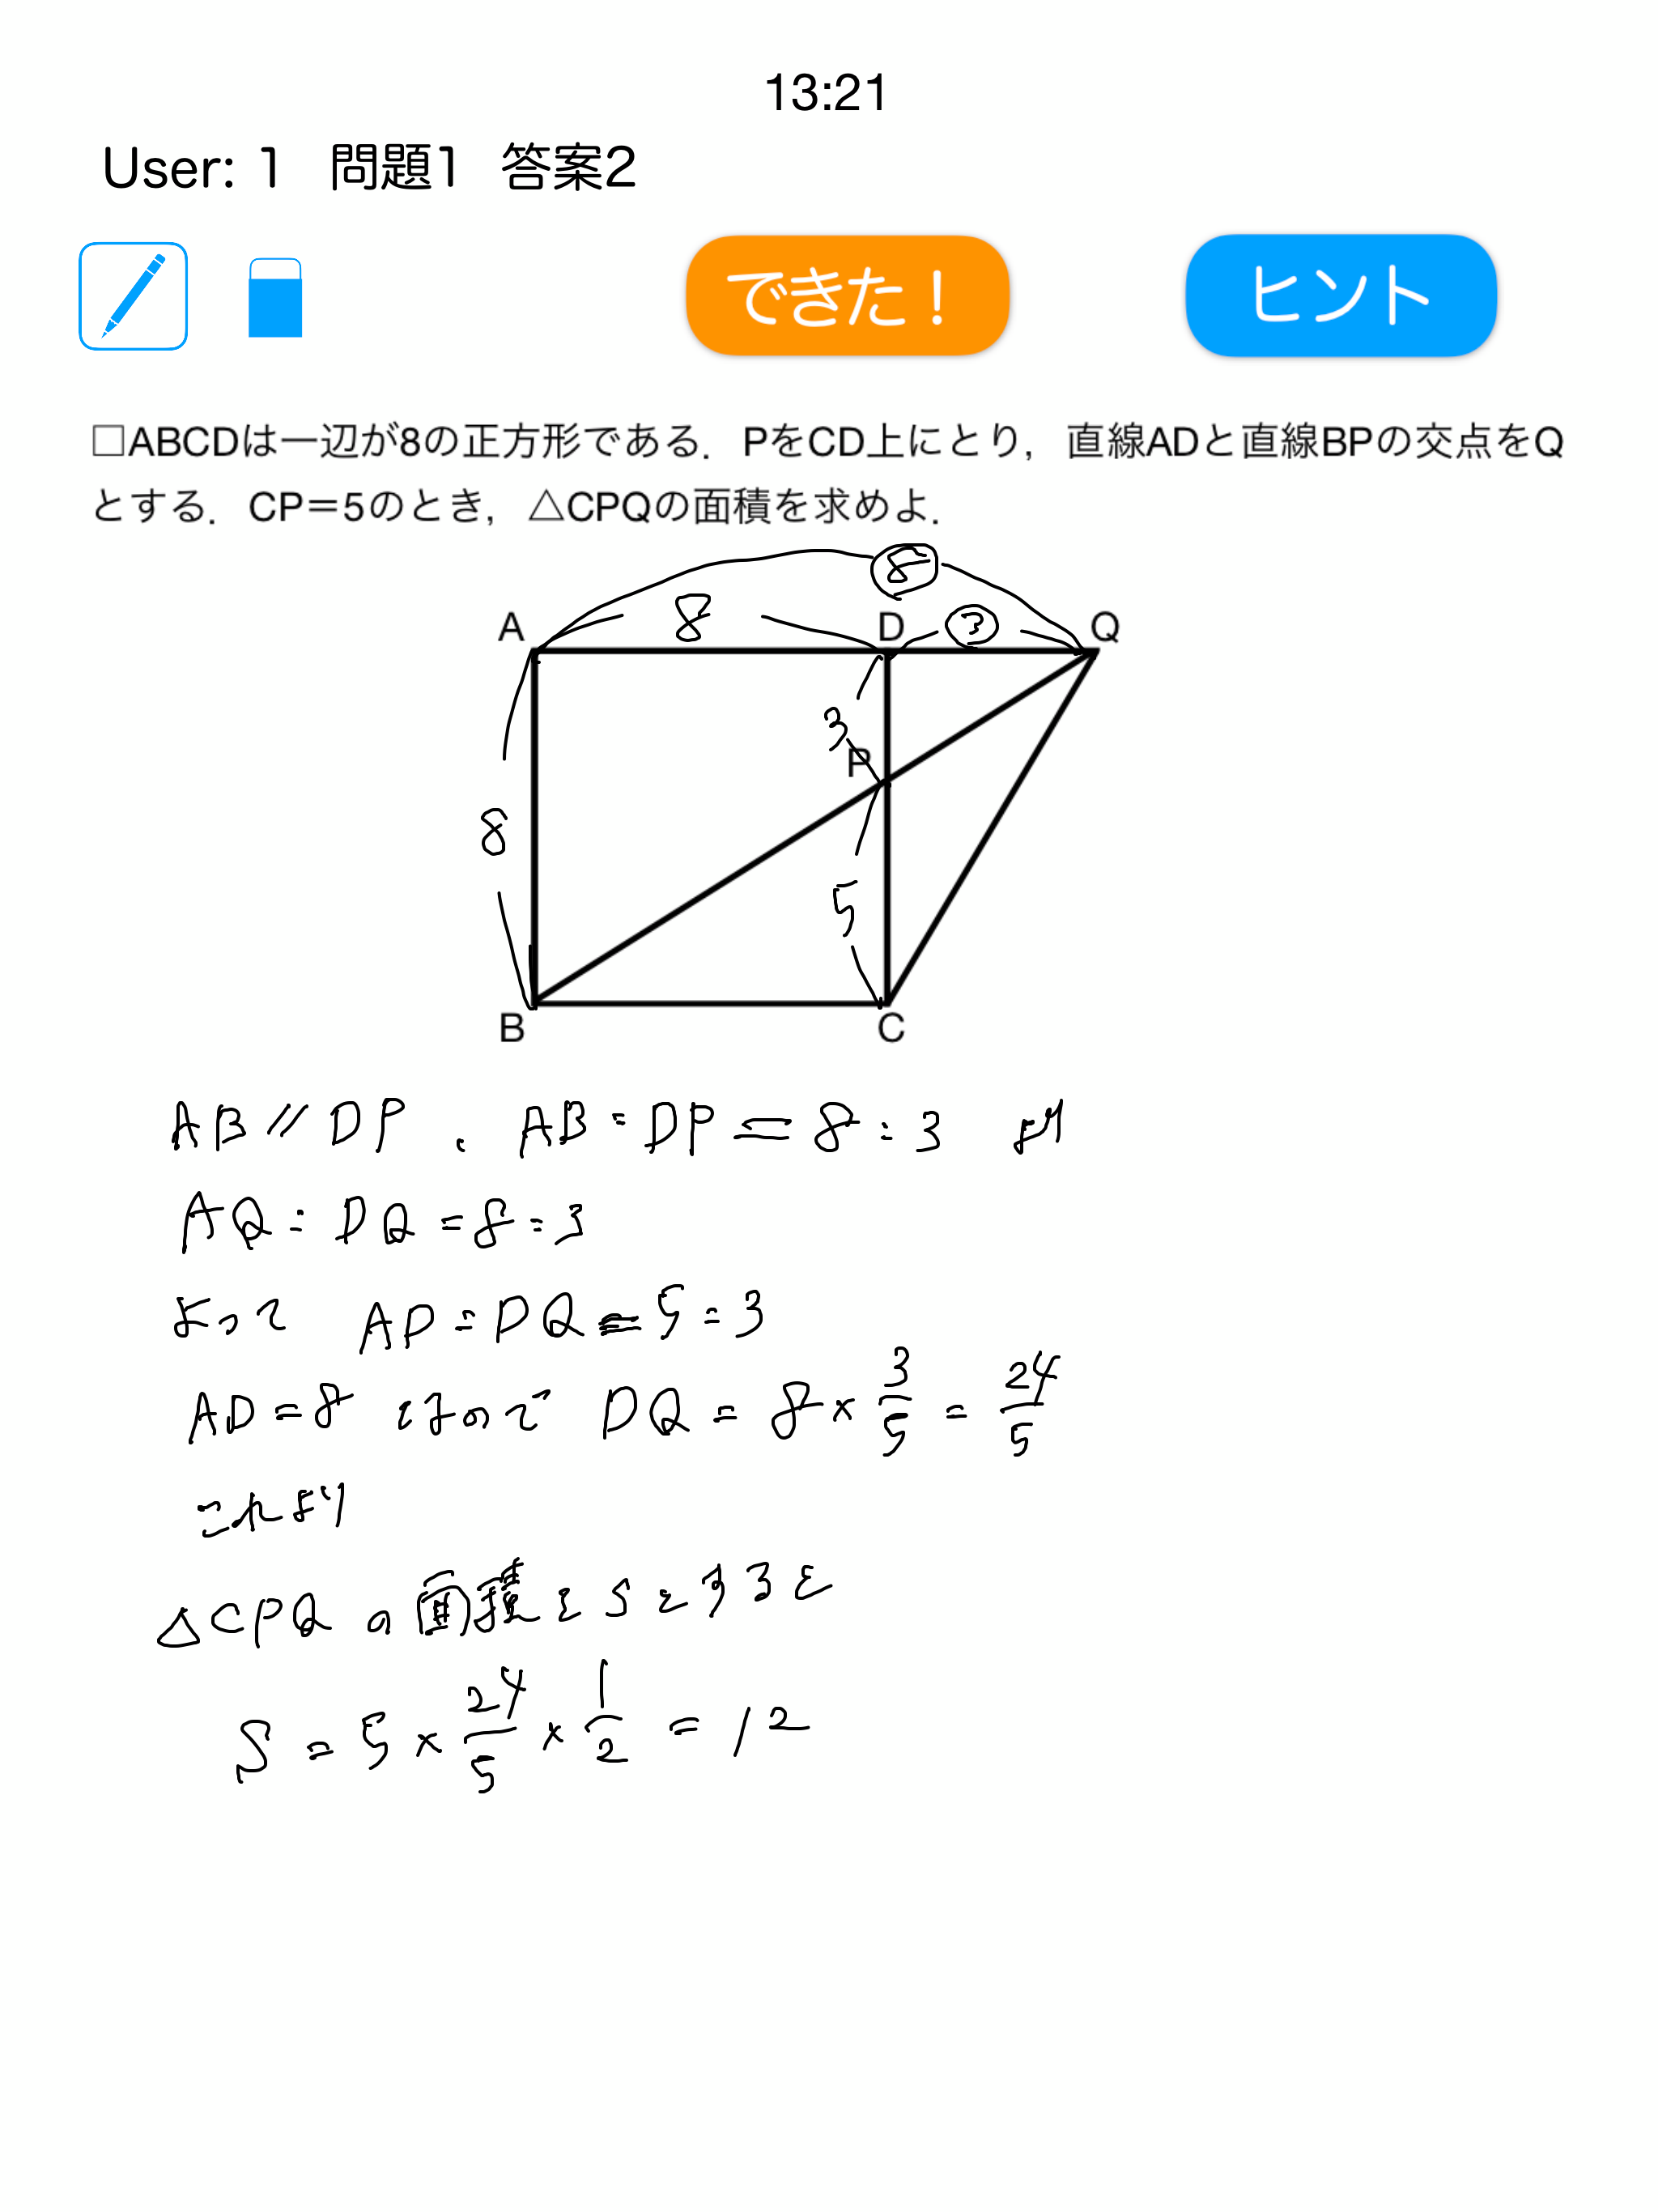 13:21
User: 1 問題1 答案2
できた！ ヒント
□ABCDは一辺が8の正方形である．PをCD上にとり，直線ADと直線BPの交点をQ
とする．CP＝5のとき，△CPQの面積を求めよ．
⑧
A 8 D ③ Q
3
P
8
5
B C
AB // DP 、 AB : DP = 8 : 3 より
AQ : DQ = 8 : 3
よって AD : DQ = 5 : 3
AD = 8 なので DQ = 8 × 3/5 = 24/5
これより
△CPQ の面積を S とすると
S = 5 × 24/5 × 1/2 = 12